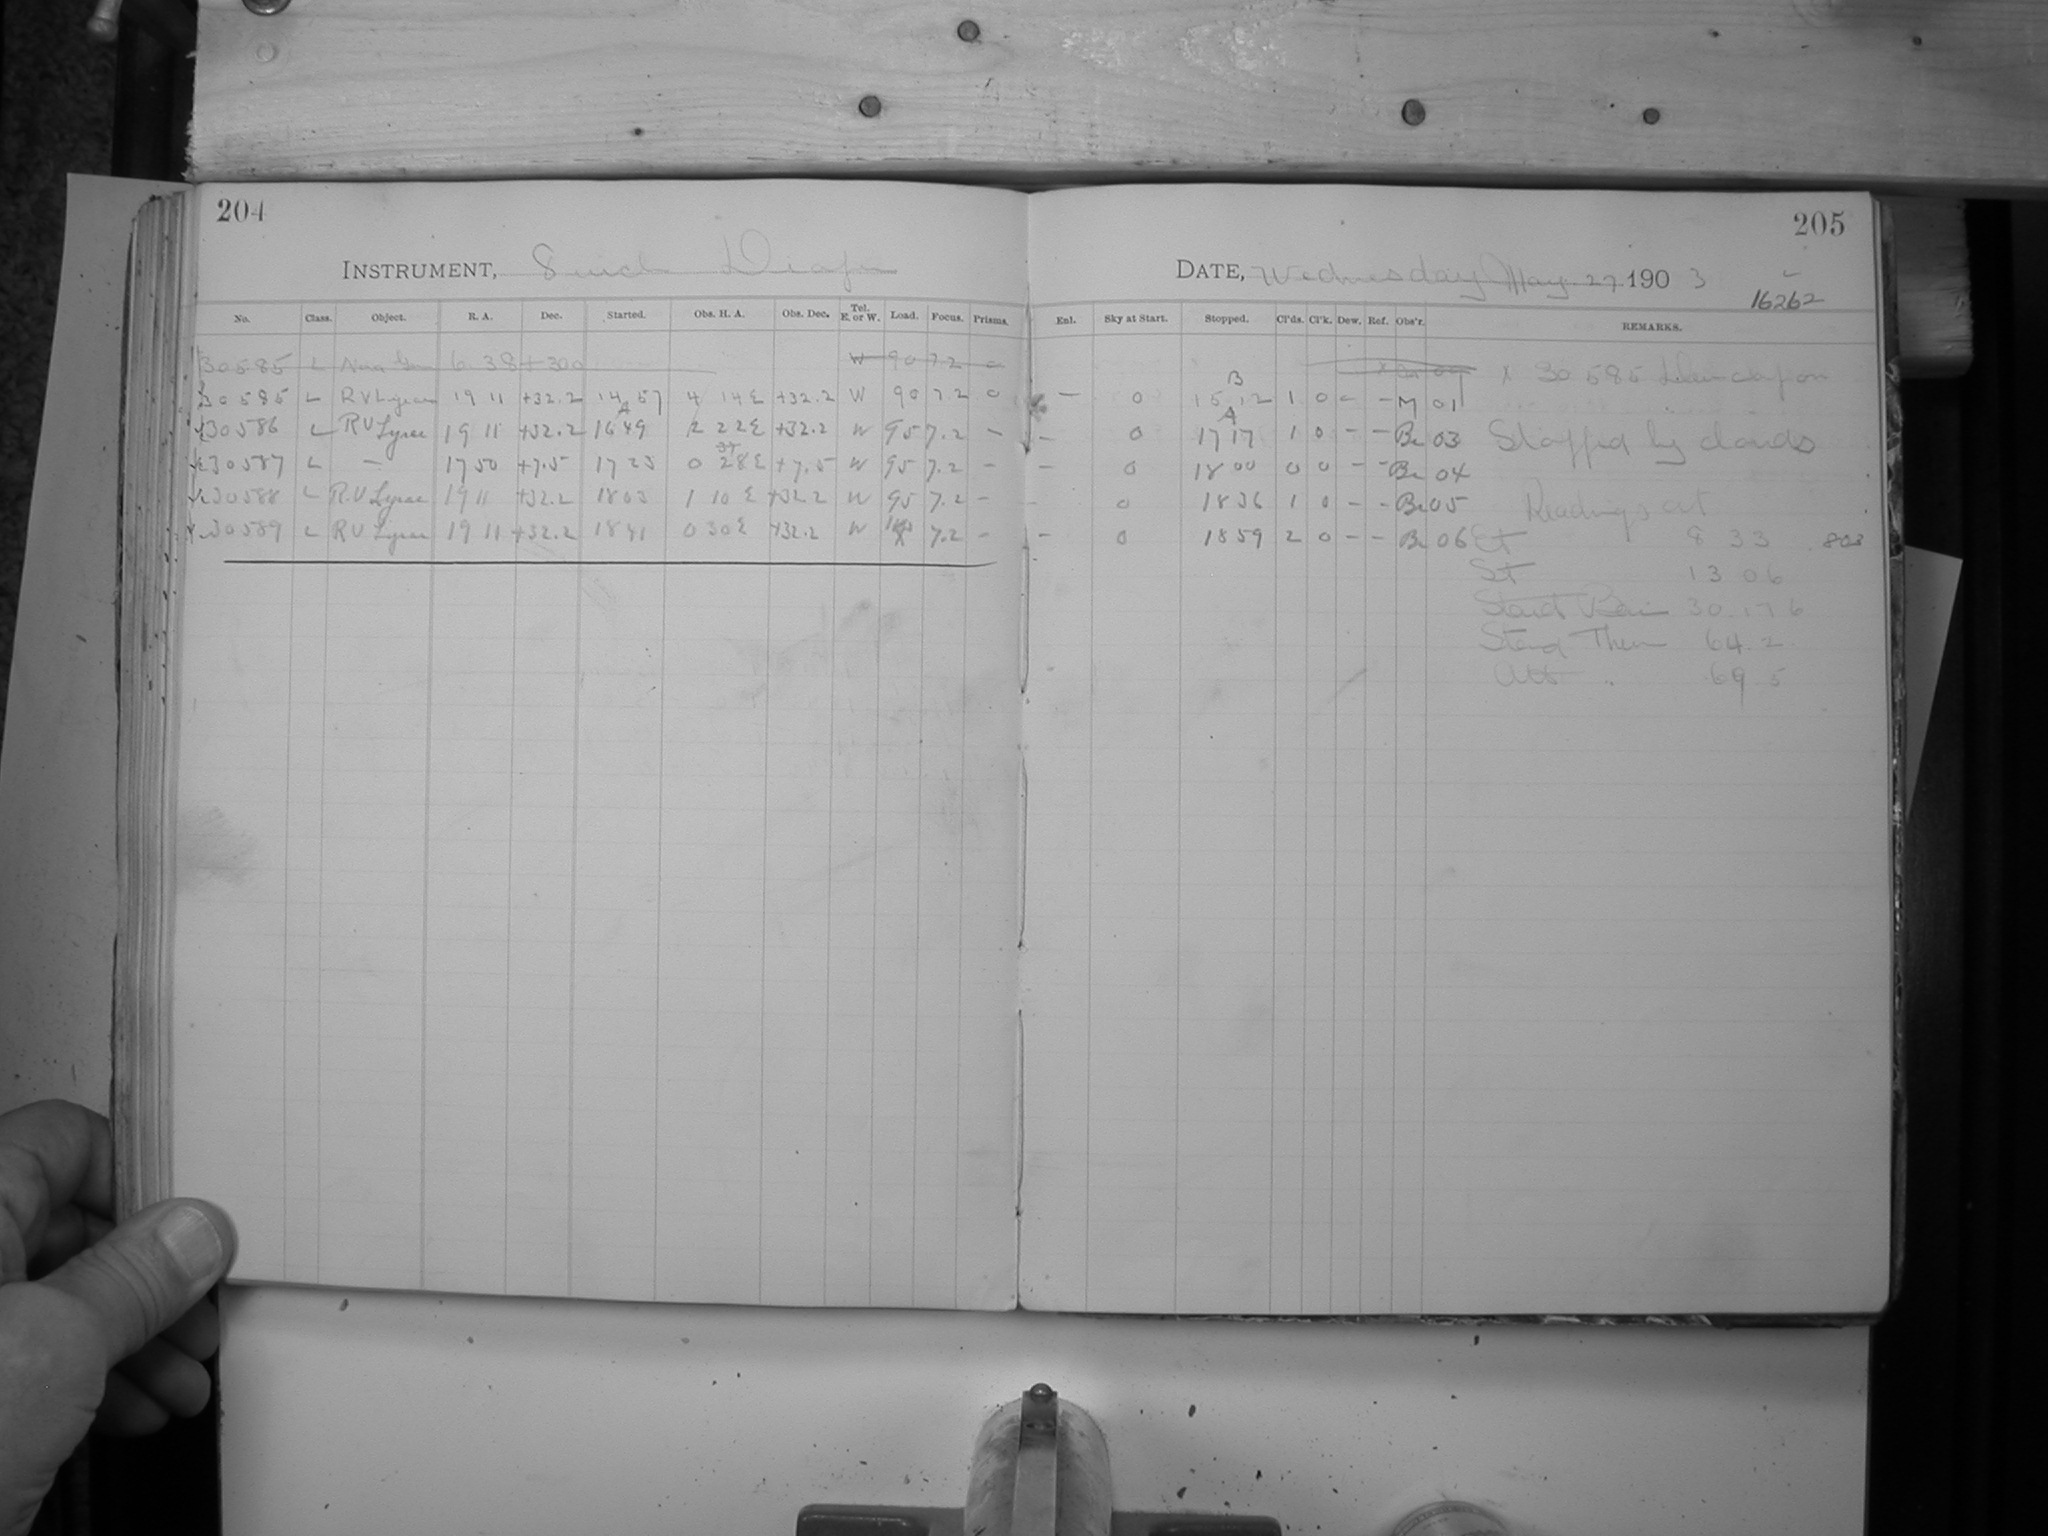 204
INSTRUMENT, 8 inch Draper
No. Class. Object. R. A. Dec. Started. Obs. H. A. Obs. Dec. Tel. E. or W. Load. Focus. Prisms.
30585 L Nova Gem 6 38 +300 W 90 7.2 0
30585 L RV Lyrae 19 11 +32.2 14 57 4 14 E +32.2 W 90 7.2 0
30586 L RV Lyrae 19 11 +32.2 16 49 2 22 E +32.2 W 95 7.2 —
30587 L — 17 50 +7.5 17 25 0 28 E +7.5 W 95 7.2 —
30588 L RV Lyrae 19 11 +32.2 18 03 1 10 E +32.2 W 95 7.2 —
30589 L RV Lyrae 19 11 +32.2 18 41 0 30 E +32.2 W 7.2 —
205
DATE, Wednesday May 27 1903
16262
Enl. Sky at Start. Stopped. Cl'ds. Cl'k. Dew. Ref. Obs'r. REMARKS.
x 30585
— 0 B 15 12 1 0 – – M 01
– 0 A 17 17 1 0 – – Br 03 Stopped by clouds
– 0 18 00 0 0 – – Br 04
0 18 36 1 0 – – Br 05 Readings at
– 0 18 59 2 0 – – Br 06 Et 8 33 803
St 13 06
Stand Bar 30.176
Stand Ther 64.2
Att " 69.5